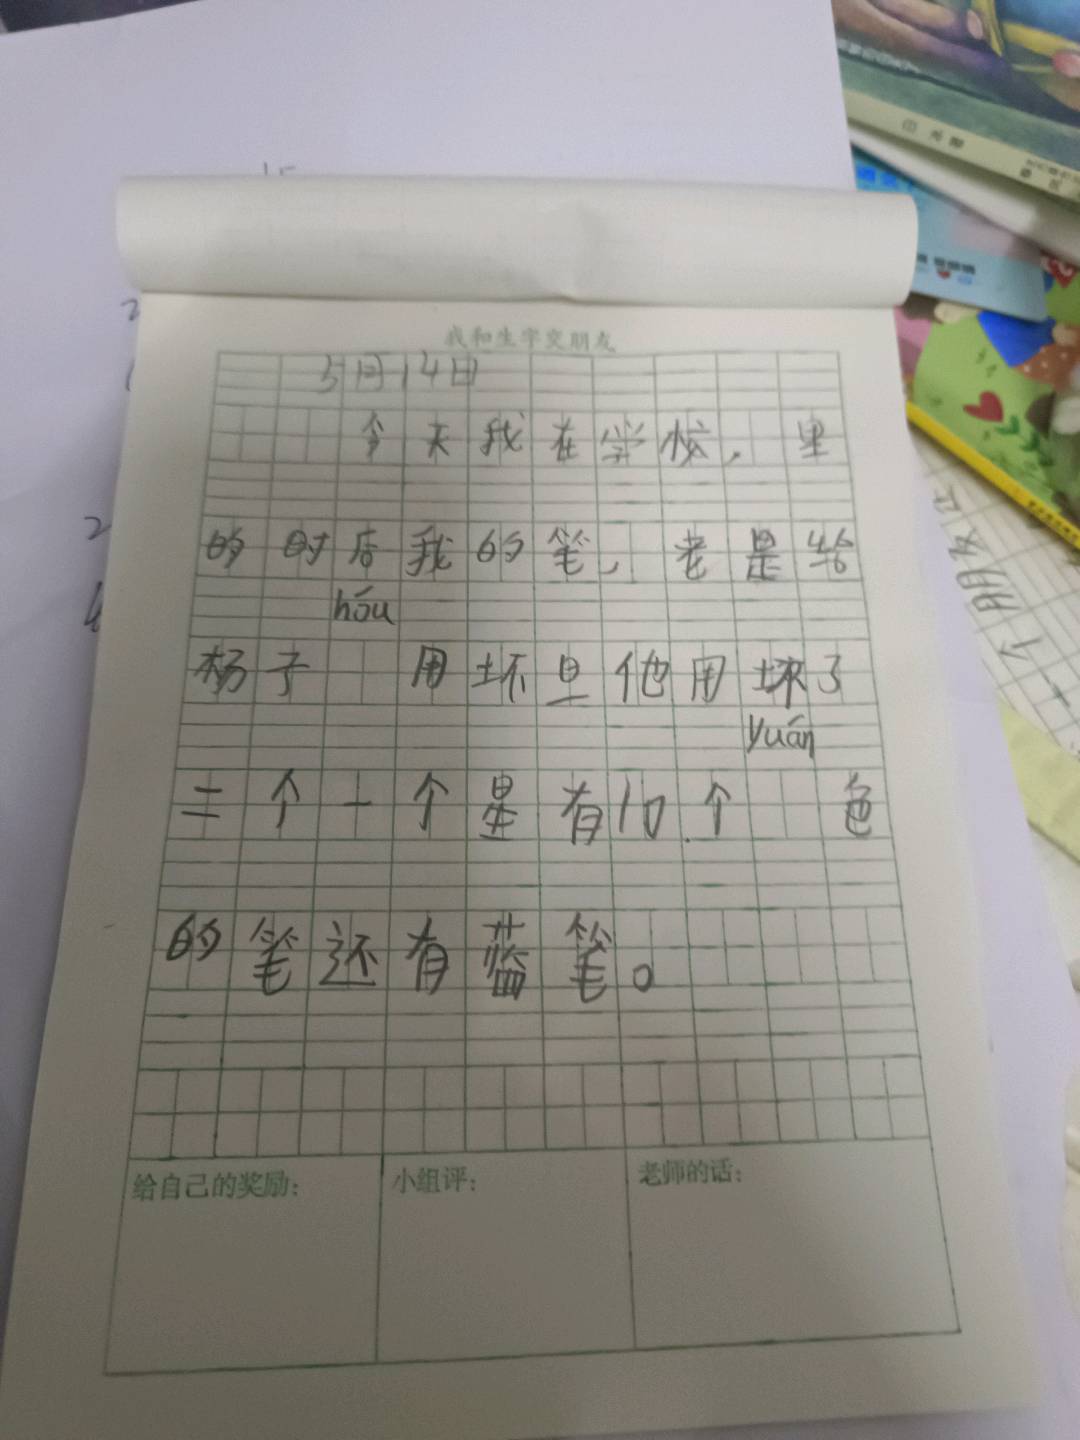 我和生字交朋友
5月14日
今天我在学校，里
的时后我的笔，老是给
hóu
杨子 用坏旦他用坏了
yuán
二个一个星有10个 色
的笔还有蓝笔。
给自己的奖励： 小组评： 老师的话：
朋友
个